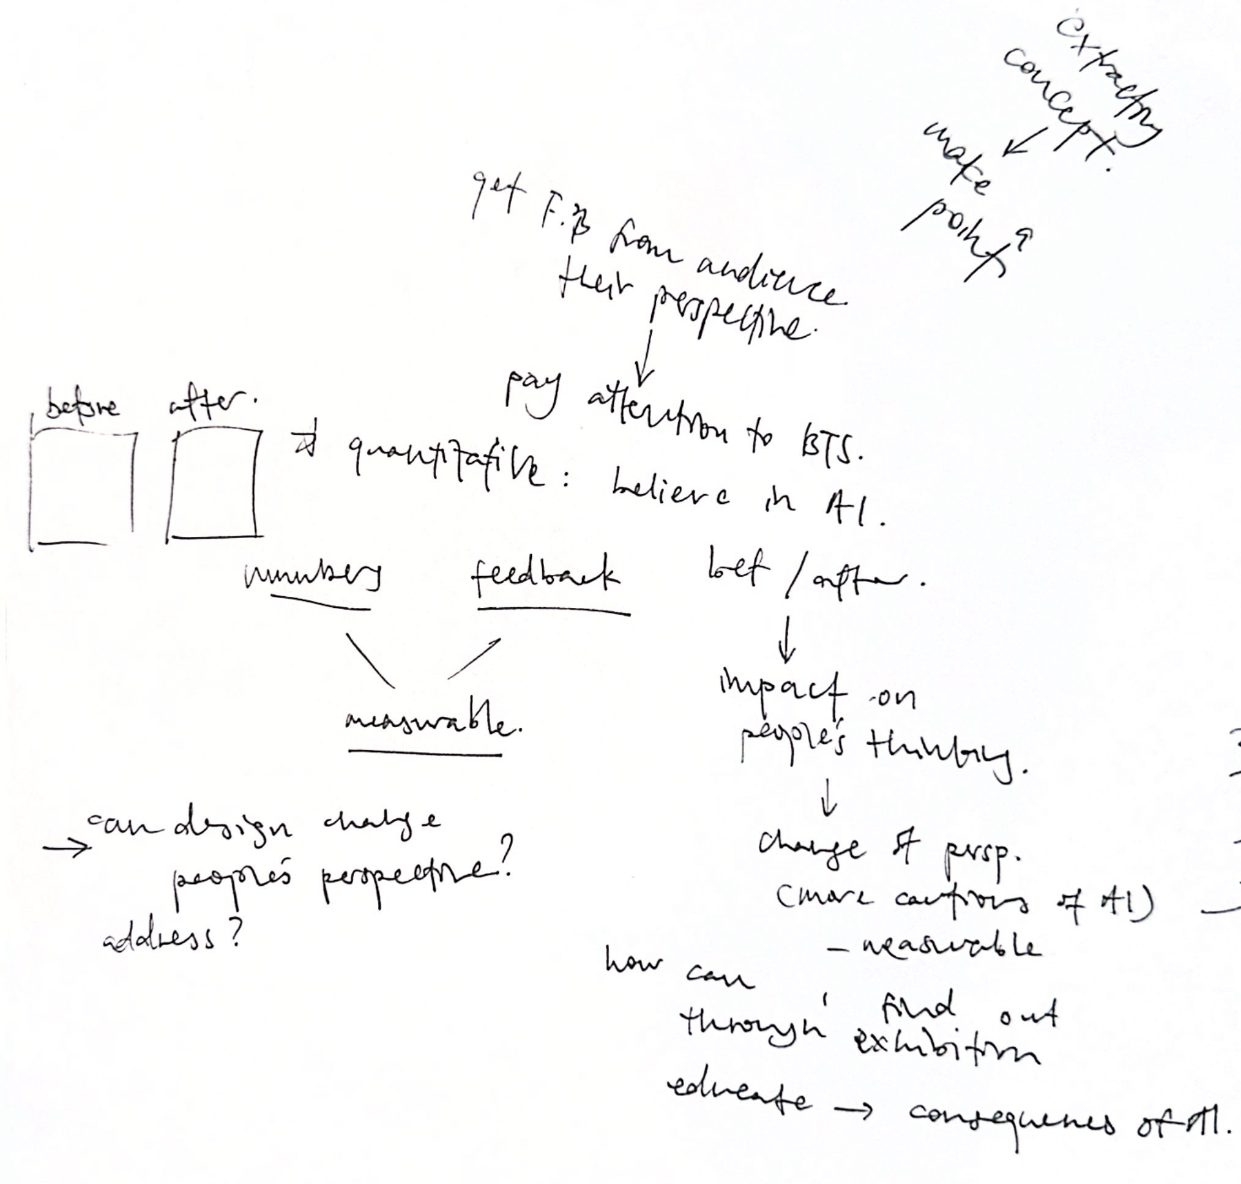 extracting
concept.
make
point
get F.B from audience
their perspective.
pay attention to BTS.
before after.
quantitative: believe in AI.
numbers feedback
bef / after.
measurable.
impact on
people's thinking.
can design change
people's perspective?
address?
change of persp.
(more cautious of AI)
- measurable
how can I find out
through exhibition
educate → consequences of AI.